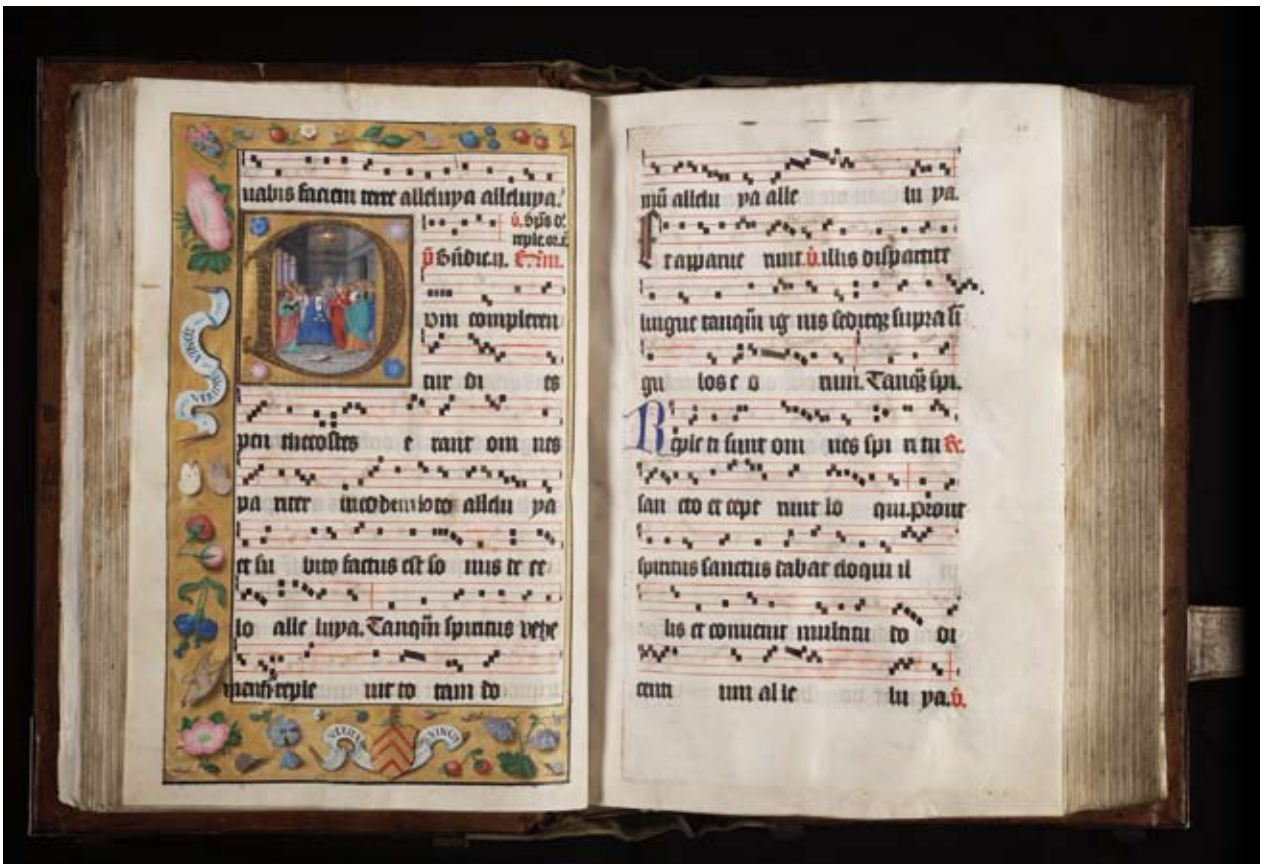 uabis faciem terre alleluya alleluya.
Dum compleren
tur di es
pen thecostes e rant om nes
pa riter in eodem loco allelu ya
et su bito factus est so nus de ce
lo alle luya. Tanqm̄ spiritus vehe
reple uit to tam do
mū allelu ya alle lu ya.
runt. v̄. illis dispartite
lingue tanqm̄ ig nis seditqꝫ supra si
gu los e o rum. Tanqꝫ spi.
Reple ti sunt om nes spi ri tu R̄.
san cto et cepe runt lo qui. prout
spiritus sanctus dabat eloqui il
lis et conuenit multitu do di
centi um al le lu ya. v̄.